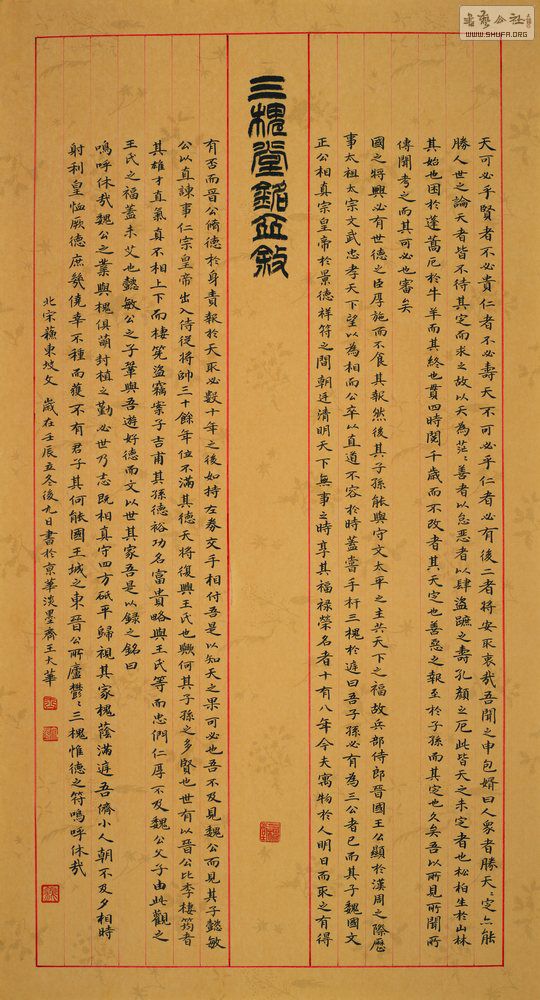 書藝公社
WWW.SHUFA.ORG
天可必乎賢者不必貴仁者不必壽天不可必乎仁者必有後二者將安取衷哉吾聞之申包胥曰人眾者勝天〻定亦能
勝人世之論天者皆不待其定而求之故以天為茫〻善者以怠惡者以肆盜蹠之壽孔顏之厄此皆天之未定者也松柏生於山林
其始也困於蓬蒿厄於牛羊而其終也貫四時閱千歲而不改者其天定也善惡之報至於子孫而其定也久矣吾以所見所聞所
傳聞考之而其可必也審矣
國之將興必有世德之臣厚施而不食其報然後其子孫能與守文太平之主共天下之福故兵部侍郎晉國王公顯於漢周之際歷
事太祖太宗文武忠孝天下望以為相而公卒以直道不容於時蓋嘗手杆三槐於庭曰吾子孫必有為三公者已而其子魏國文
正公相真宗皇帝於景德祥符之間朝廷清明天下無事之時享其福祿榮名者十有八年今夫寓物於人明日而取之有得
三槐堂銘並敘
有否而晉公脩德於身責報於天取必數十年之後如持左券交手相付吾是以知天之果可必也吾不及見魏公而見其子懿敏
公以直諫事仁宗皇帝出入侍從將帥三十餘年位不滿其德天將復興王氏也歟何其子孫之多賢也世有以晉公比李棲筠者
其雄才直氣真不相上下而棲筦盜竊案子吉甫其孫德裕功名富貴略與王氏等而忠們仁厚不及魏公父子由此觀之
王氏之福蓋未艾也懿敏公之子鞏與吾遊好德而文以世其家吾是以錄之銘曰
嗚呼休哉魏公之業與槐俱萌封植之勤必世乃志既相真守四方砥平歸視其家槐蔭滿庭吾儕小人朝不及夕相時
射利皇恤厥德庶幾僥幸不種而獲不有君子其何能國王城之東晉公所廬鬱〻三槐惟德之符嗚呼休哉
北宋蘇東坡文 歲在壬辰立冬後九日書於京華淡墨齋王大華